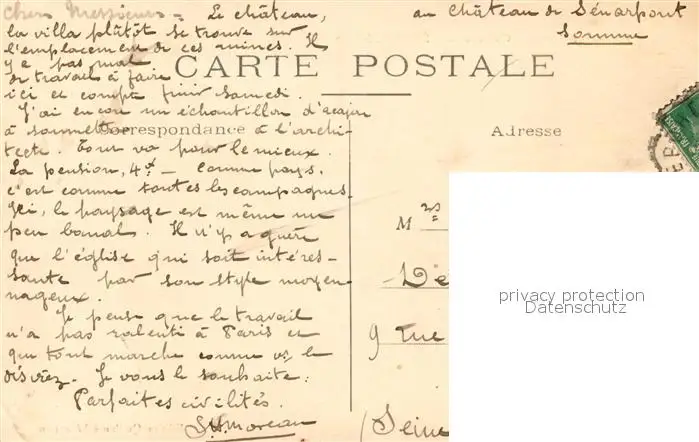 Chers Messieurs - Le château,
la villa plûtôt se trouve sur
l'emplacement de ces mines. Il
y a pas mal
de travail à faire
ici et compte finir samedi.
J'ai encore un échantillon d'acajou
à soumettre à l'archi-
tecte. Tout va pour le mieux.
La pension, 4 - Comme pays.
c'est comme toutes les campagnes.
Ici, le paysage est même un
peu banal. Il n'y a guère
que l'église qui soit intéres-
sante par son style moyen-
nageux.
Je pense que le travail
n'a pas ralenti à Paris et
que tout marche comme vs le
désirez. Je vous le souhaite.
Parfaites civilités.
Moreau
au château de Sénarpont
Somme
CARTE POSTALE
Correspondance
Adresse
Mrs
De
9 rue
(Seine
privacy protection
Datenschutz